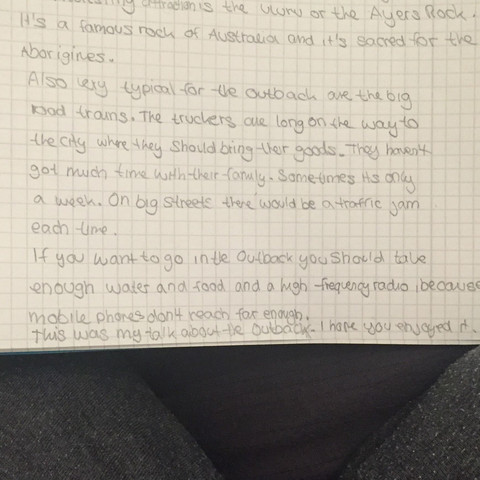 attraction is the Uluru or the Ayers Rock.
It's a famous rock of Australia and it's sacred for the
Aborigines.
Also very typical for the outback are the big
road trains. The truckers are long on the way to
the city where they should bring their goods. They haven't
got much time with their family. Sometimes its only
a week. On big streets there would be a traffic jam
each time.
If you want to go in the Outback you should take
enough water and food and a high-frequency radio, because
mobile phones don't reach far enough.
This was my talk about the Outback. I hope you enjoyed it.